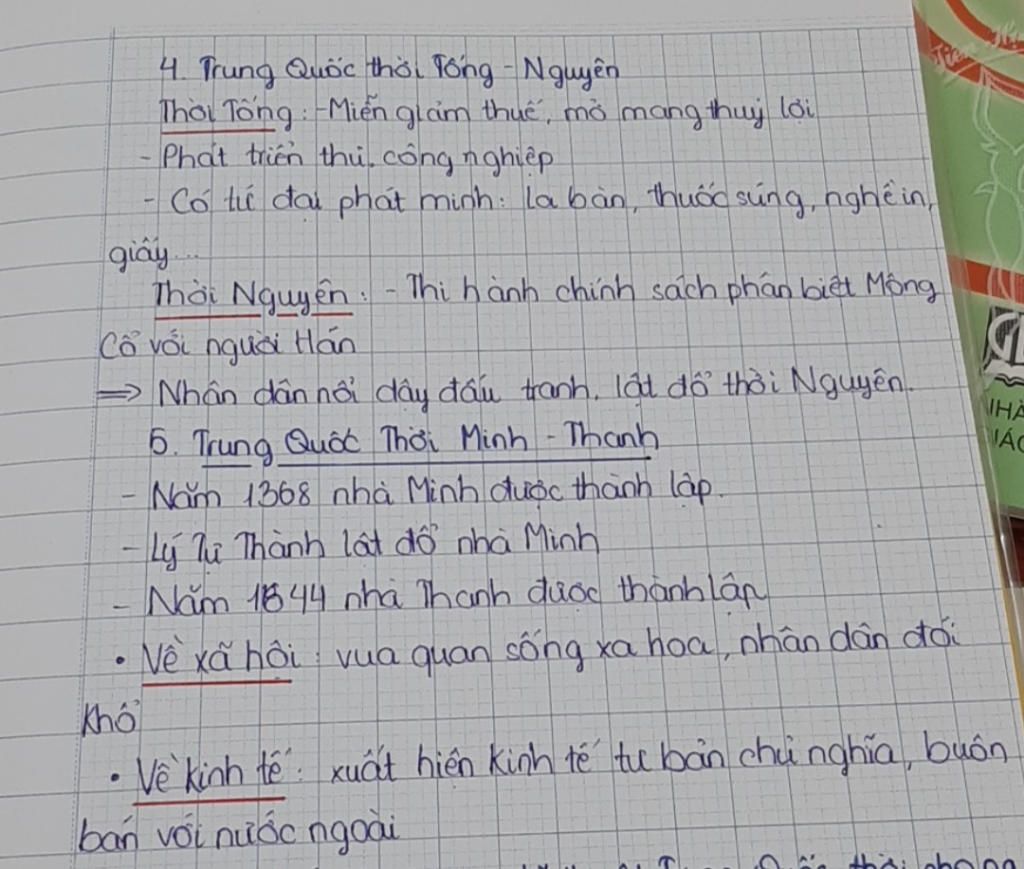 4. Trung Quốc thời Tống - Nguyên
Thời Tống: - Miễn giảm thuế, mở mang thuỷ lợi
- Phát triển thủ công nghiệp
- Có tứ đại phát minh: La bàn, thuốc súng, nghề in,
giấy...
Thời Nguyên: - Thi hành chính sách phân biệt Mông
Cổ với người Hán
=> Nhân dân nổi dây đấu tranh, lật đổ thời Nguyên.
5. Trung Quốc Thời Minh - Thanh
- Năm 1368 nhà Minh được thành lập.
- Lý Tự Thành lật đổ nhà Minh
- Năm 1644 nhà Thanh được thành lập
• Về xã hội: vua quan sống xa hoa, nhân dân đói
khổ
• Về kinh tế: xuất hiện kinh tế tư bản chủ nghĩa, buôn
bán với nước ngoài